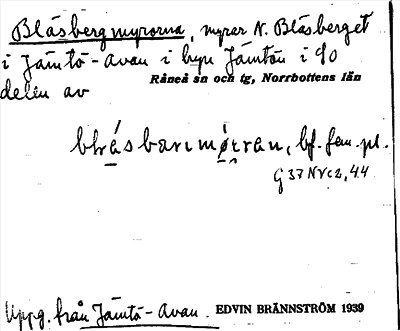 Blåsbergmyrorna, myrar N. Blåsberget
i Jämtö-Avan i byn Jämtön i SO
Råneå sn och tg, Norrbottens län
delen av
blåsbarımø̣rran, bf. fem. pl.
G 37 NV c 2, 44
Uppg. från Jämtö-Avan. EDVIN BRÄNNSTRÖM 1939